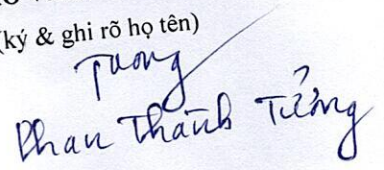 (ký & ghi rõ họ tên)
Tương
Phan Thành Tưởng